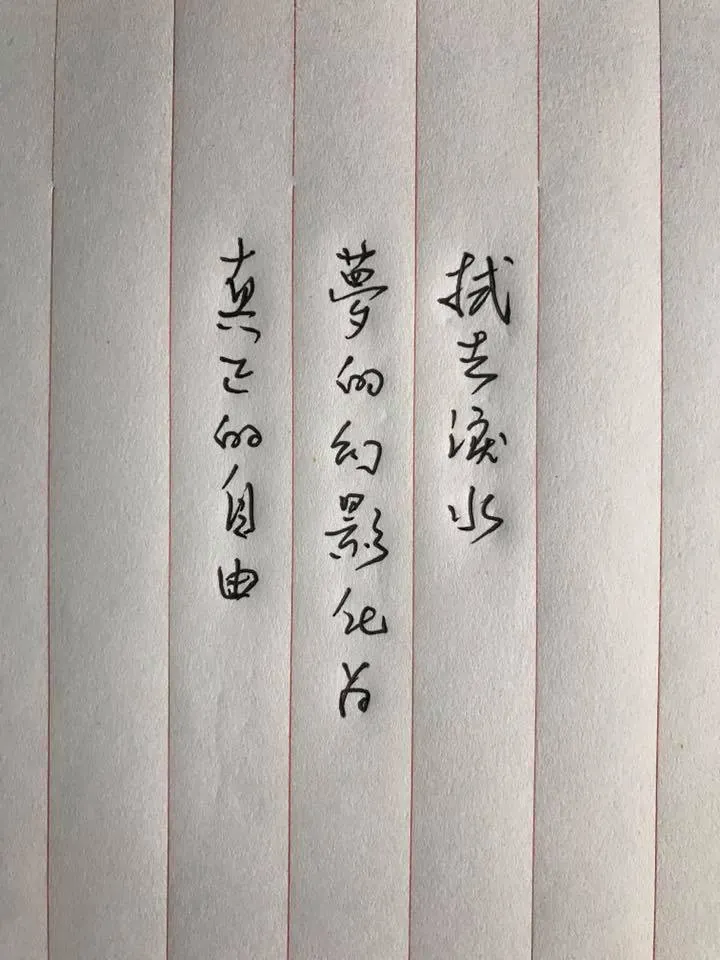 拭去淚水
夢的幻影化为
真正的自由